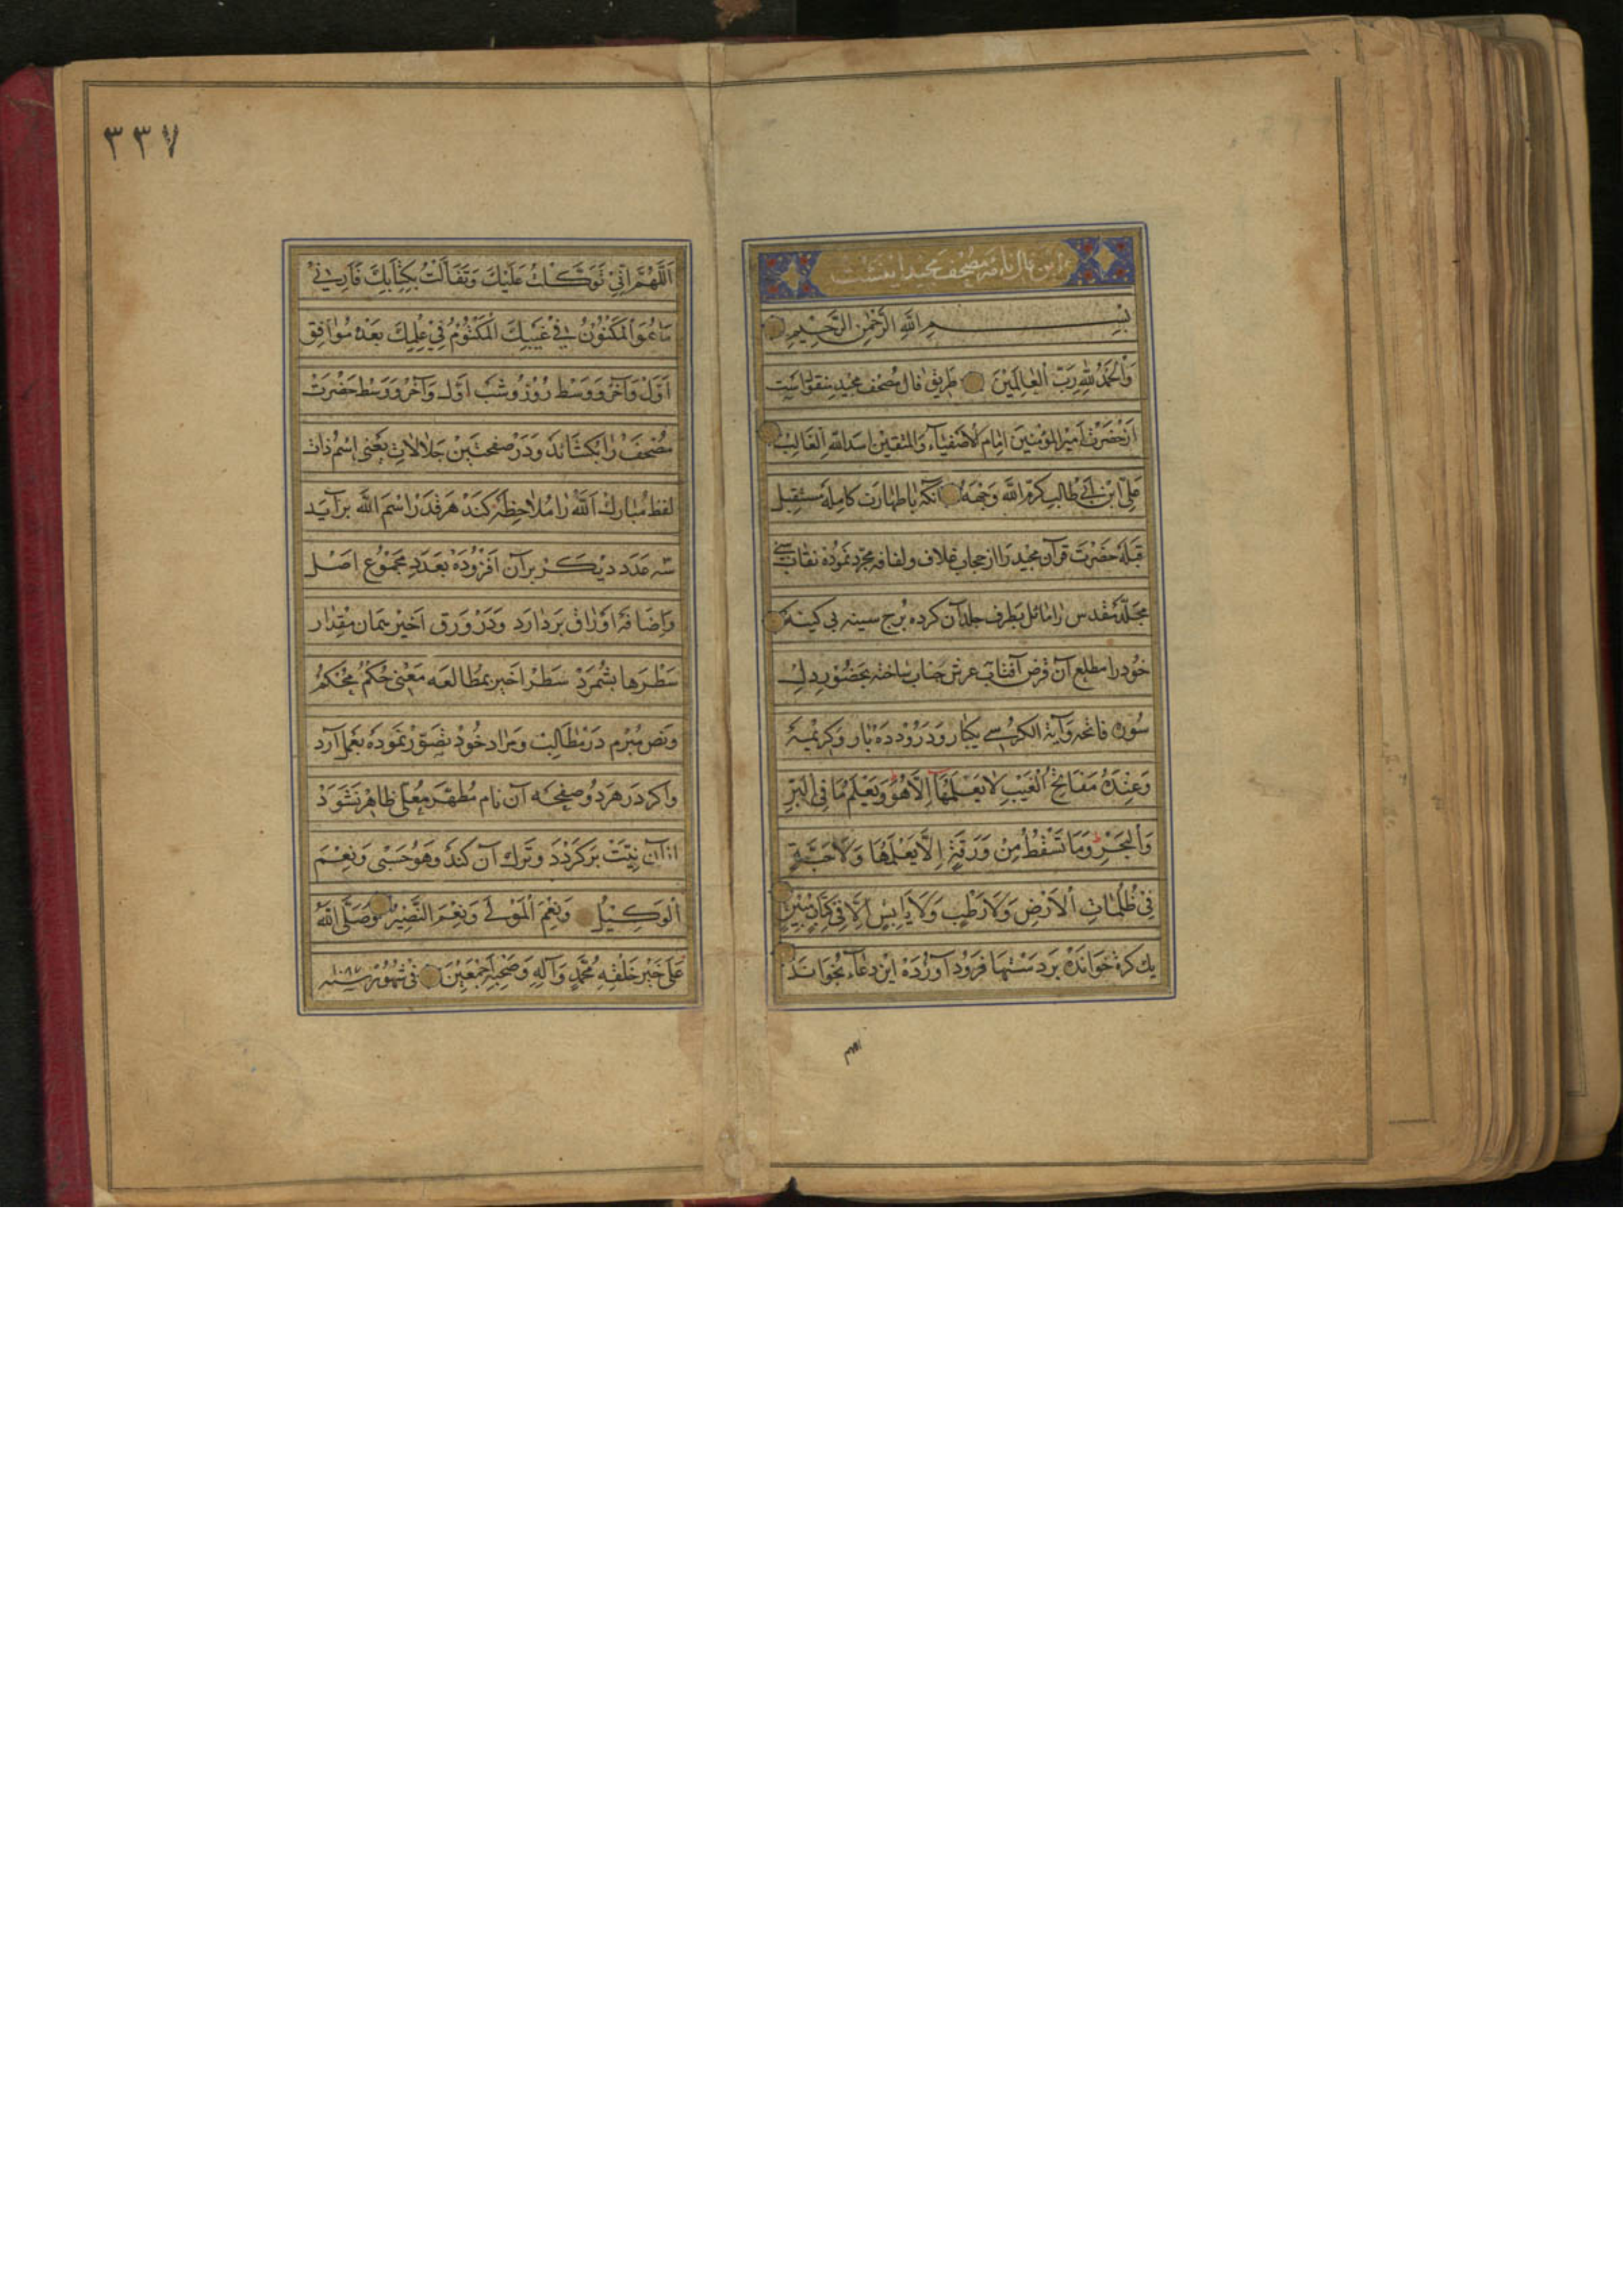 اين فال نامه مصحف مجيد اينست
بِسْمِ اللَّهِ الرَّحْمٰنِ الرَّحِيمِ
وَالْحَمْدُ لِلّٰهِ رَبِّ الْعَالَمِينَ طريق فال مصحف مجيد منقولست
از حضرت امير المؤمنين امام الاصفياء والمتقين اسد الله الغالب
علي ابن ابي طالب كرم الله وجهه آنكه با طهارت كامله مستقبل
قبله حضرت قرآن مجيد را از حجاب غلاف ولفافه مجرد نموده نقاب
مجلد مقدس را مائل بطرف جلد آن كرده برج سينه بي كينه
خود را مطلع آن قرص آفتاب عرش جناب ساخته بحضور دل
سوره فاتحه وآية الكرسي يكبار ودرود ده بار وكريمه
وَعِنْدَهُ مَفَاتِحُ الْغَيْبِ لَا يَعْلَمُهَا إِلَّا هُوَ وَيَعْلَمُ مَا فِي الْبَرِّ
وَالْبَحْرِ وَمَا تَسْقُطُ مِنْ وَرَقَةٍ إِلَّا يَعْلَمُهَا وَلَا حَبَّةٍ
فِي ظُلُمَاتِ الْأَرْضِ وَلَا رَطْبٍ وَلَا يَابِسٍ إِلَّا فِي كِتَابٍ مُبِينٍ
يك كرة خوانده بر دستها فرود آورده اين دعاء بخواند
٣٣٧
اَللّٰهُمَّ اِنِّي تَوَكَّلْتُ عَلَيْكَ وَتَفَأَّلْتُ بِكِتَابِكَ فَأَرِنِي
مَا هُوَ الْمَكْنُونُ فِي غَيْبِكَ الْمَكْتُومُ فِي عِلْمِكَ بعده موافق
اول وآخر ووسط روز وشب اول وآخر ووسط حضرت
مصحف را بكشايد ودر صفحتين جلالات يعني اسم ذات
لفظ مبارك الله را ملاحظه كند هر قدر اسم الله برآيد
سه عدد ديكر بر آن افزوده بعدد مجموع اصل
واضافه اوراق بردارد ودر ورق اخير همان مقدار
سطرها بشمرد سطر اخير بمطالعه معني حكم محكم
ونص مبرم در مطالب ومراد خود تصور نموده بعمل آرد
واكر در هر دو صفحه آن نام مطهر معلى ظاهر نشود
از آن نيت بركردد وترك آن كند وَهُوَ حَسْبِي وَنِعْمَ
الْوَكِيلُ وَنِعْمَ الْمَوْلٰى وَنِعْمَ النَّصِيرُ وَصَلَّى اللّٰهُ
عَلٰى خَيْرِ خَلْقِهِ مُحَمَّدٍ وَآلِهِ وَصَحْبِهِ أَجْمَعِينَ في شهور سنه